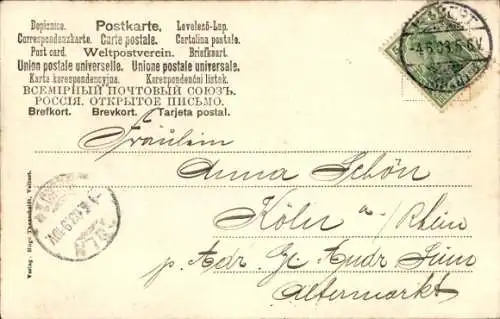 Dopisnice. Postkarte. Levelező-Lap.
Correspondenzkarte. Carte postale. Cartolina postale.
Post card. Weltpostverein. Briefkaart.
Union postale universelle. Unione postale universale.
Karta korespondencyjna. Korespondenční lístek.
ВСЕМІРНЫЙ ПОЧТОВЫЙ СОЮЗЪ.
РОССІЯ. ОТКРЫТОЕ ПИСЬМО.
Brefkort. Brevkort. Tarjeta postal.
Fräulein
Anna Schön
Köln a/Rhein
p. Adr.
Altermarkt
Verlag